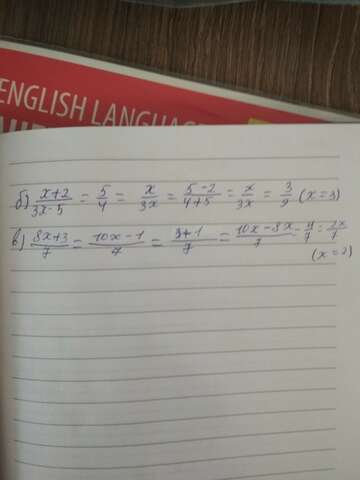 ENGLISH LANGUAGE
б) x+2/3x-5 = 5/4 = x/3x = 5-2/4+5 = x/3x = 3/9 (x=3)
в) 8x+3/7 = 10x-1/7 = 3+1/7 = 10x-8x/7 = 4/7 = 2x/7
(x=2)